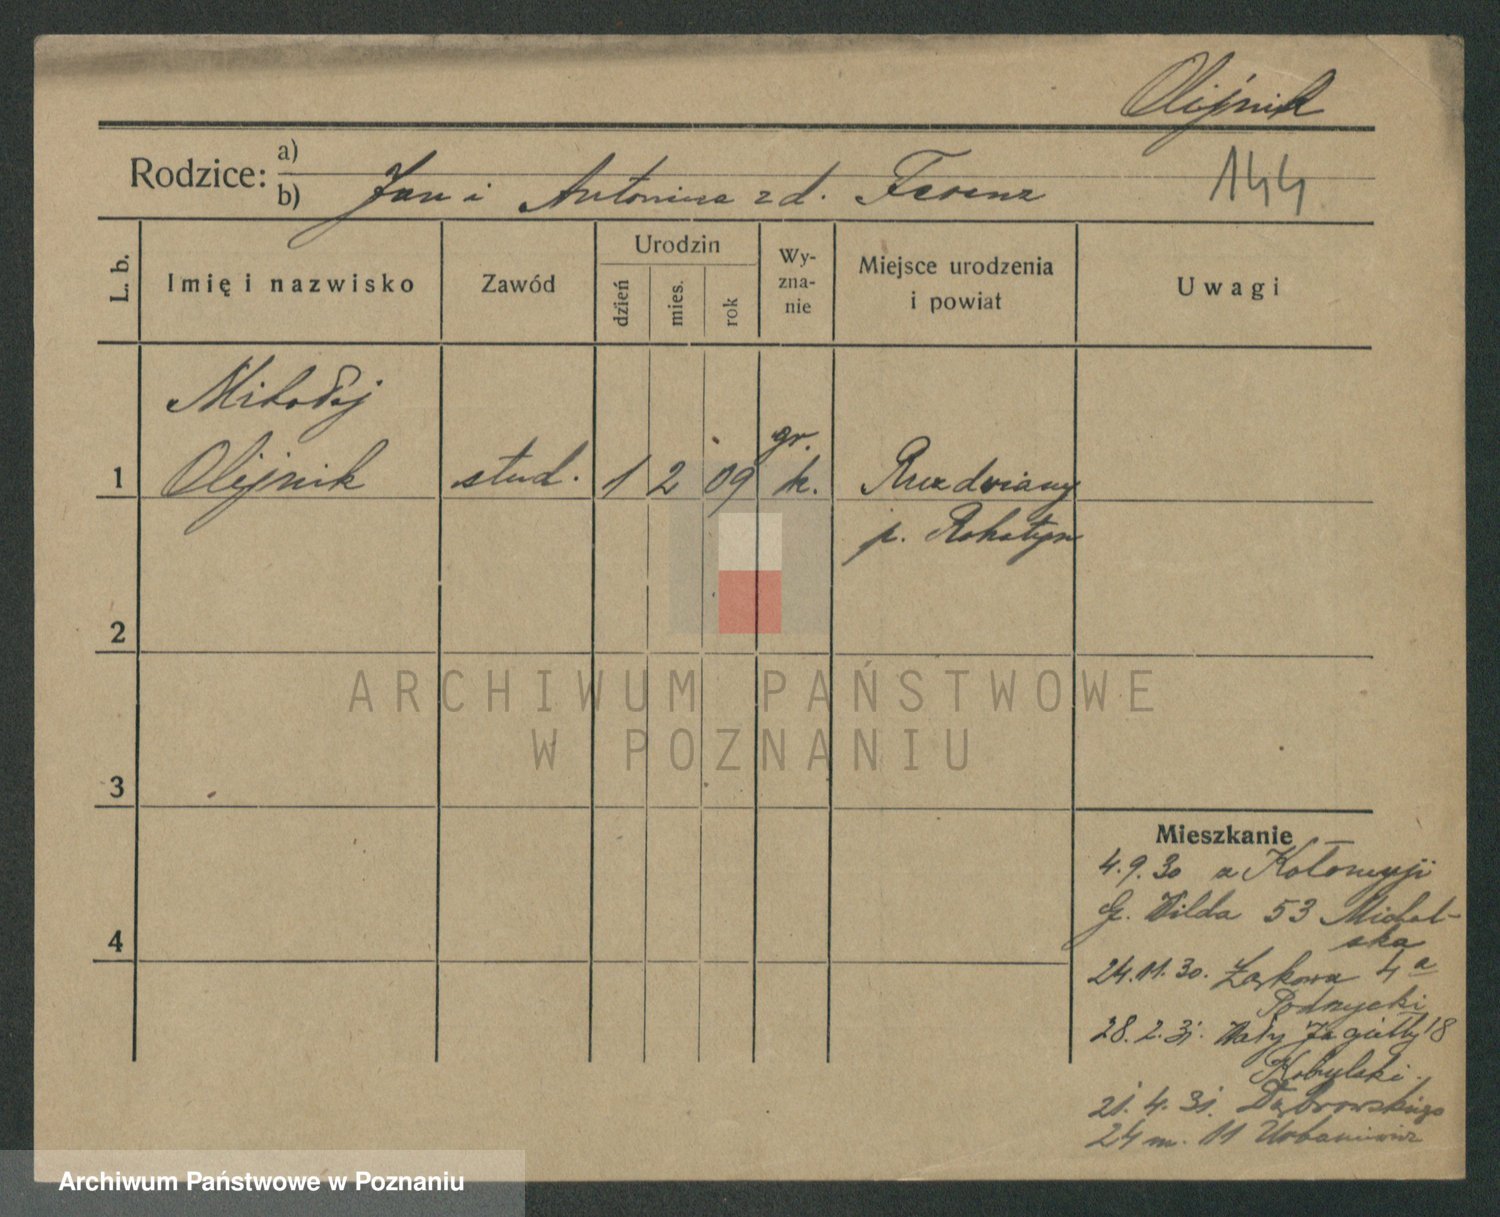 Olijnik
144
Rodzice:
a)
b) Jan i Antonina z d. Ferenz
L. b.
Imię i nazwisko
Zawód
Urodzin
dzień
mies.
rok
Wy-
zna-
nie
Miejsce urodzenia
i powiat
Uwagi
Mikołaj
gr.
1 Olijnik stud. 1 2 09 k. Ruzdwiany
p. Rohatyn
2
ARCHIWUM PAŃSTWOWE
W POZNANIU
3
Mieszkanie
4.9.30 z Kołomyji
G. Wilda 53 Michal-
ska
4
24.11.30. Łąkowa 4 a
28.2.31. Wały Jagiełły 18
Kobylski.
21.4.31. Dąbrowskiego
24 m. 11 Urbaniewicz
Archiwum Państwowe w Poznaniu